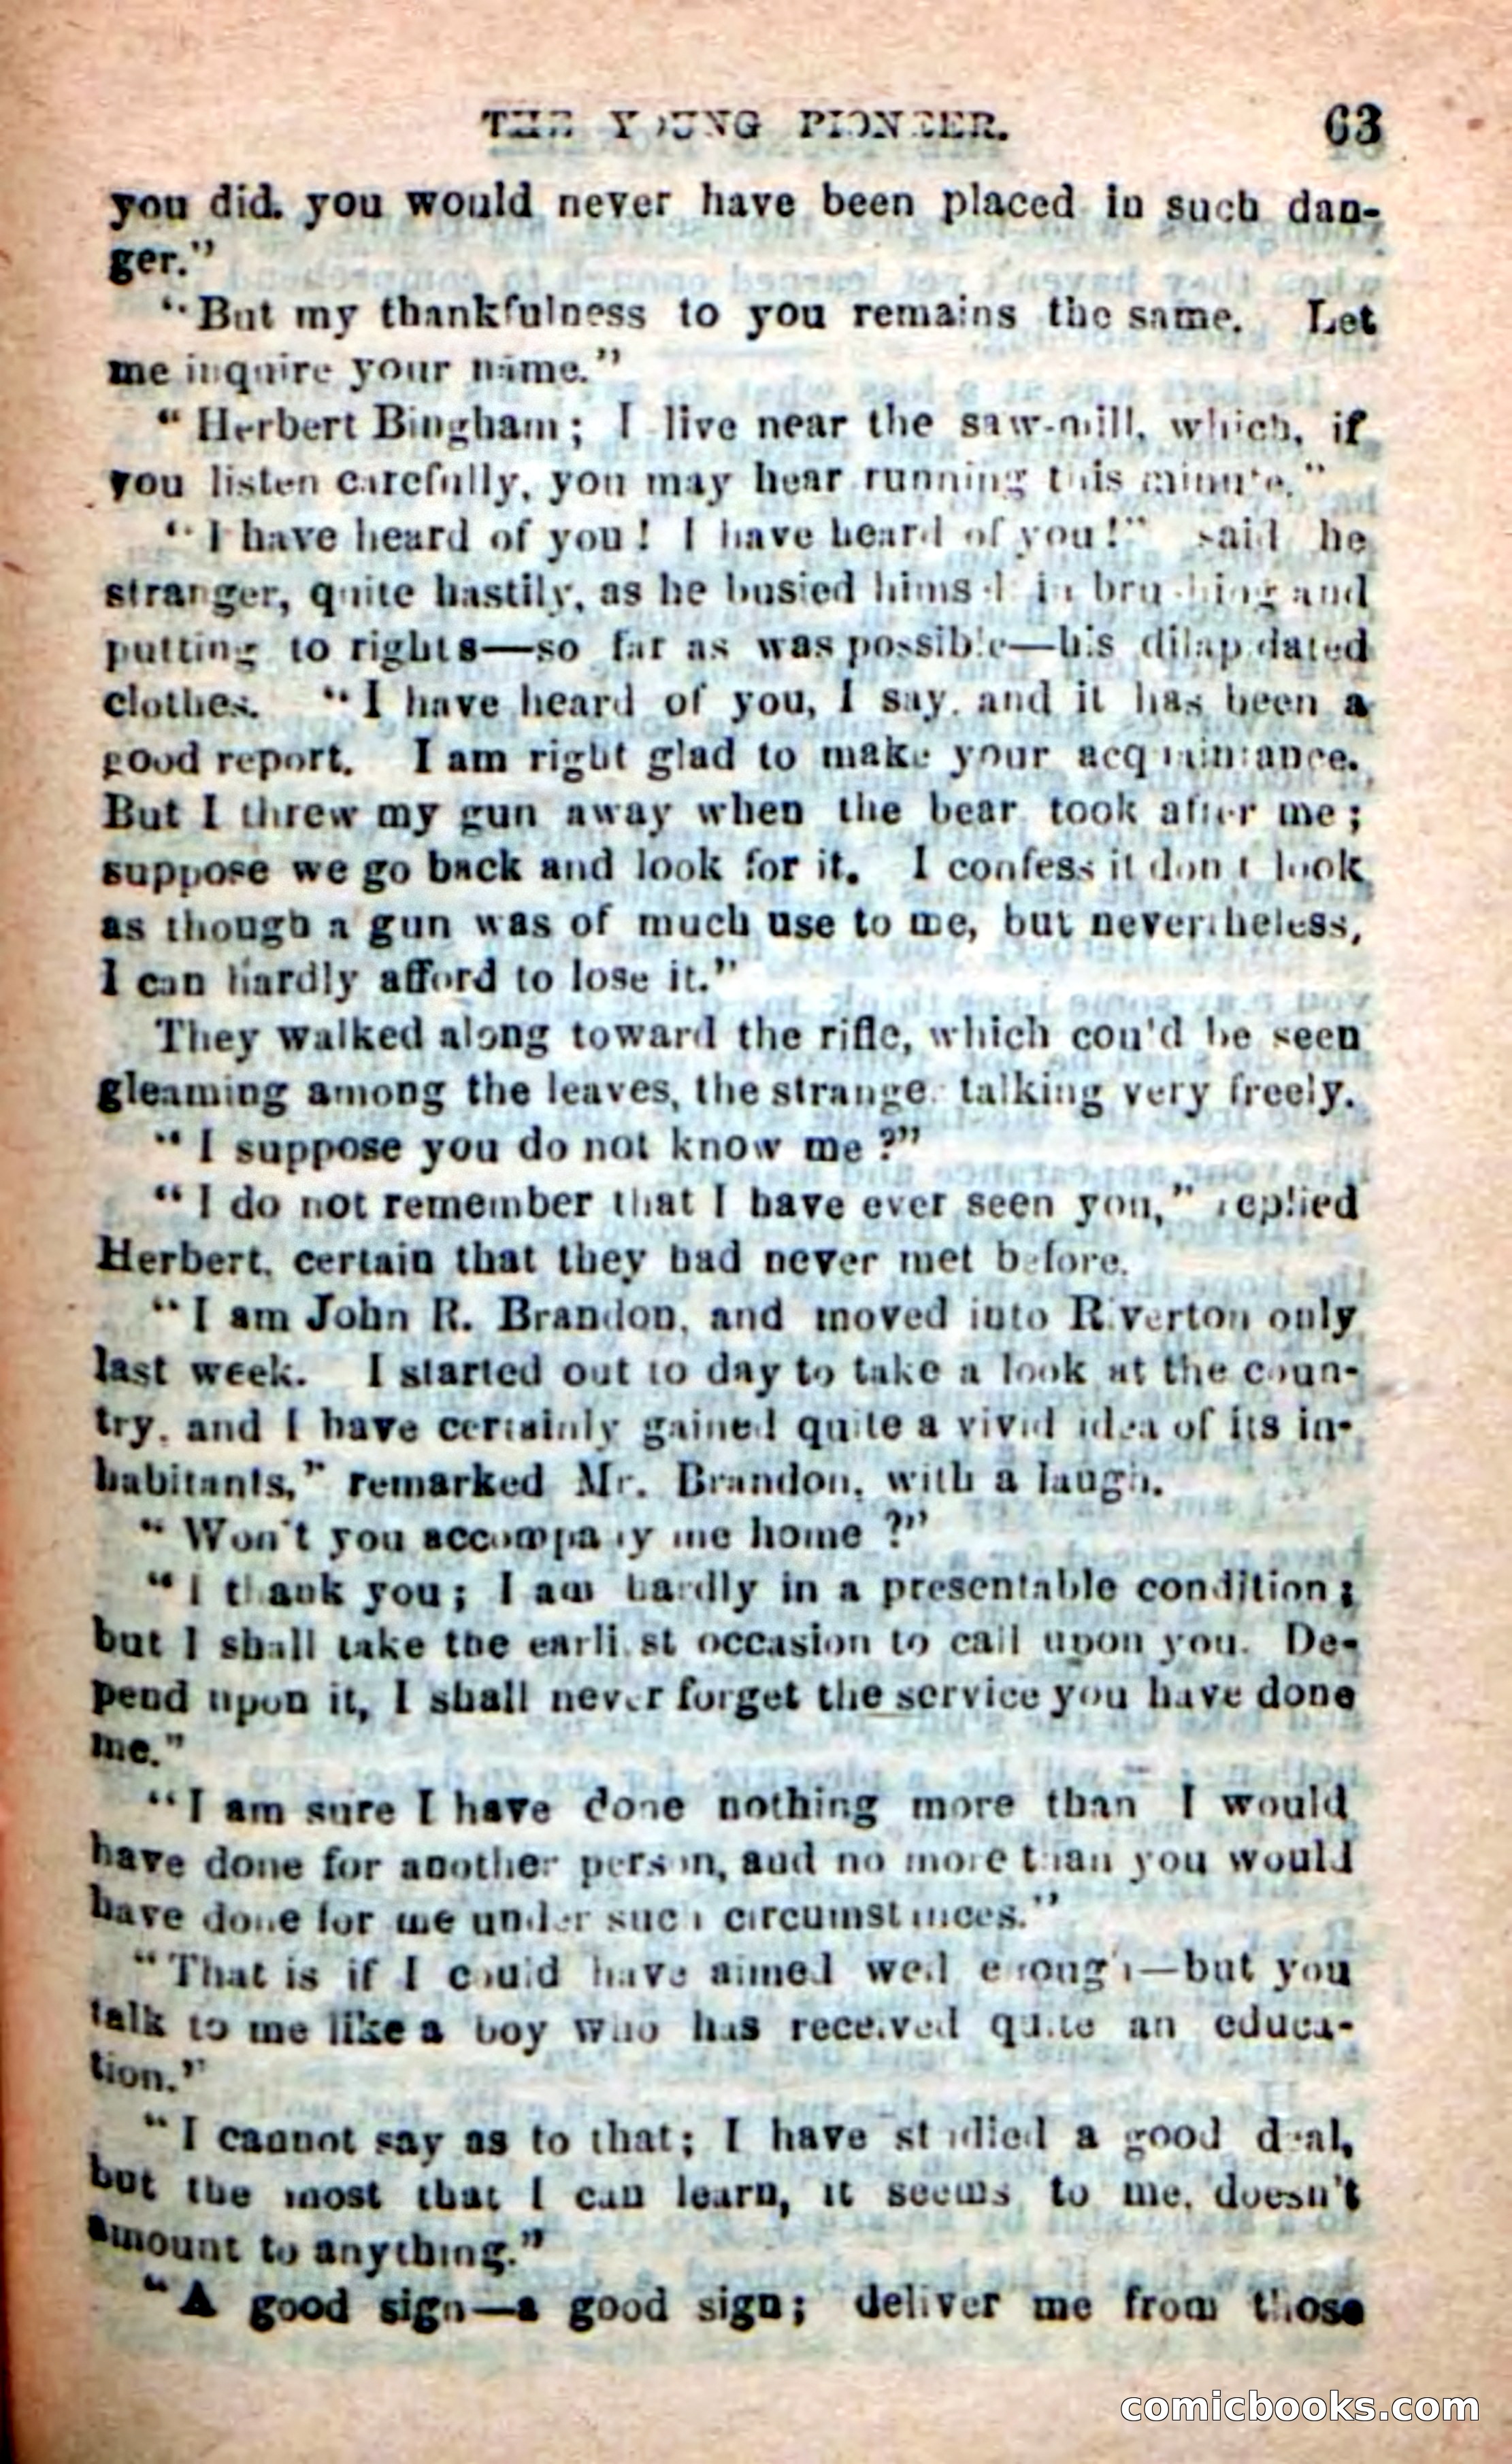 THE YOUNG PIONEER. 63
you did. you would never have been placed in such dan-
ger."
"But my thankfulness to you remains the same. Let
me inquire your name."
"Herbert Bingham; I live near the saw-mill, which, if
you listen carefully, you may hear running this minute."
"I have heard of you! I have heard of you!" said he
stranger, quite hastily, as he busied himself in brushing and
putting to rights—so far as was possible—his dilapidated
clothes. "I have heard of you, I say, and it has been a
good report. I am right glad to make your acquaintance.
But I threw my gun away when the bear took after me;
suppose we go back and look for it. I confess it don't look
as though a gun was of much use to me, but nevertheless,
I can hardly afford to lose it."
They walked along toward the rifle, which could be seen
gleaming among the leaves, the stranger talking very freely.
"I suppose you do not know me?"
"I do not remember that I have ever seen you," replied
Herbert, certain that they had never met before.
"I am John R. Brandon, and moved into Riverton only
last week. I started out to day to take a look at the coun-
try, and I have certainly gained quite a vivid idea of its in-
habitants," remarked Mr. Brandon, with a laugh.
"Won't you accompany me home?"
"I thank you; I am hardly in a presentable condition;
but I shall take the earliest occasion to call upon you. De-
pend upon it, I shall never forget the service you have done
me."
"I am sure I have done nothing more than I would
have done for another person, and no more than you would
have done for me under such circumstances."
"That is if I could have aimed well enough—but you
talk to me like a boy who has received quite an educa-
tion."
"I cannot say as to that; I have studied a good deal,
but the most that I can learn, it seems to me, doesn't
amount to anything."
"A good sign—a good sign; deliver me from those
comicbooks.com